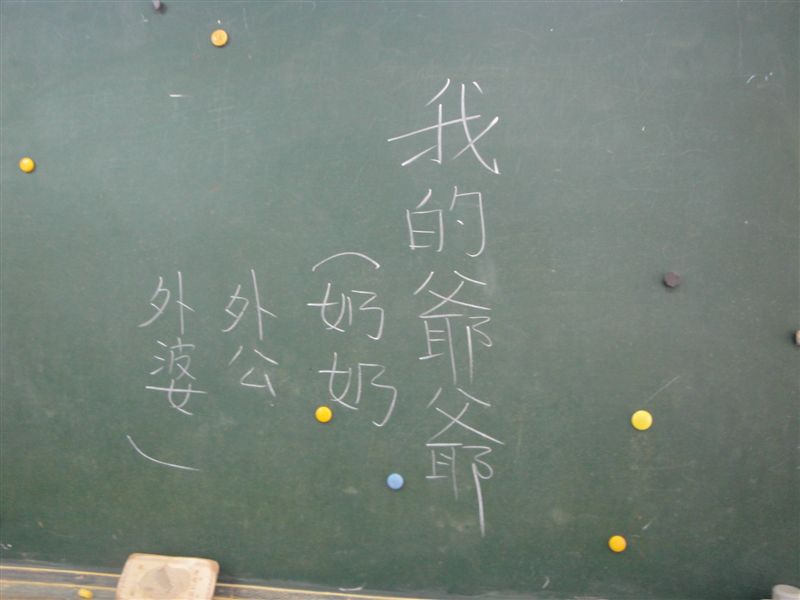 我的爺爺
（奶奶
外公
外婆）